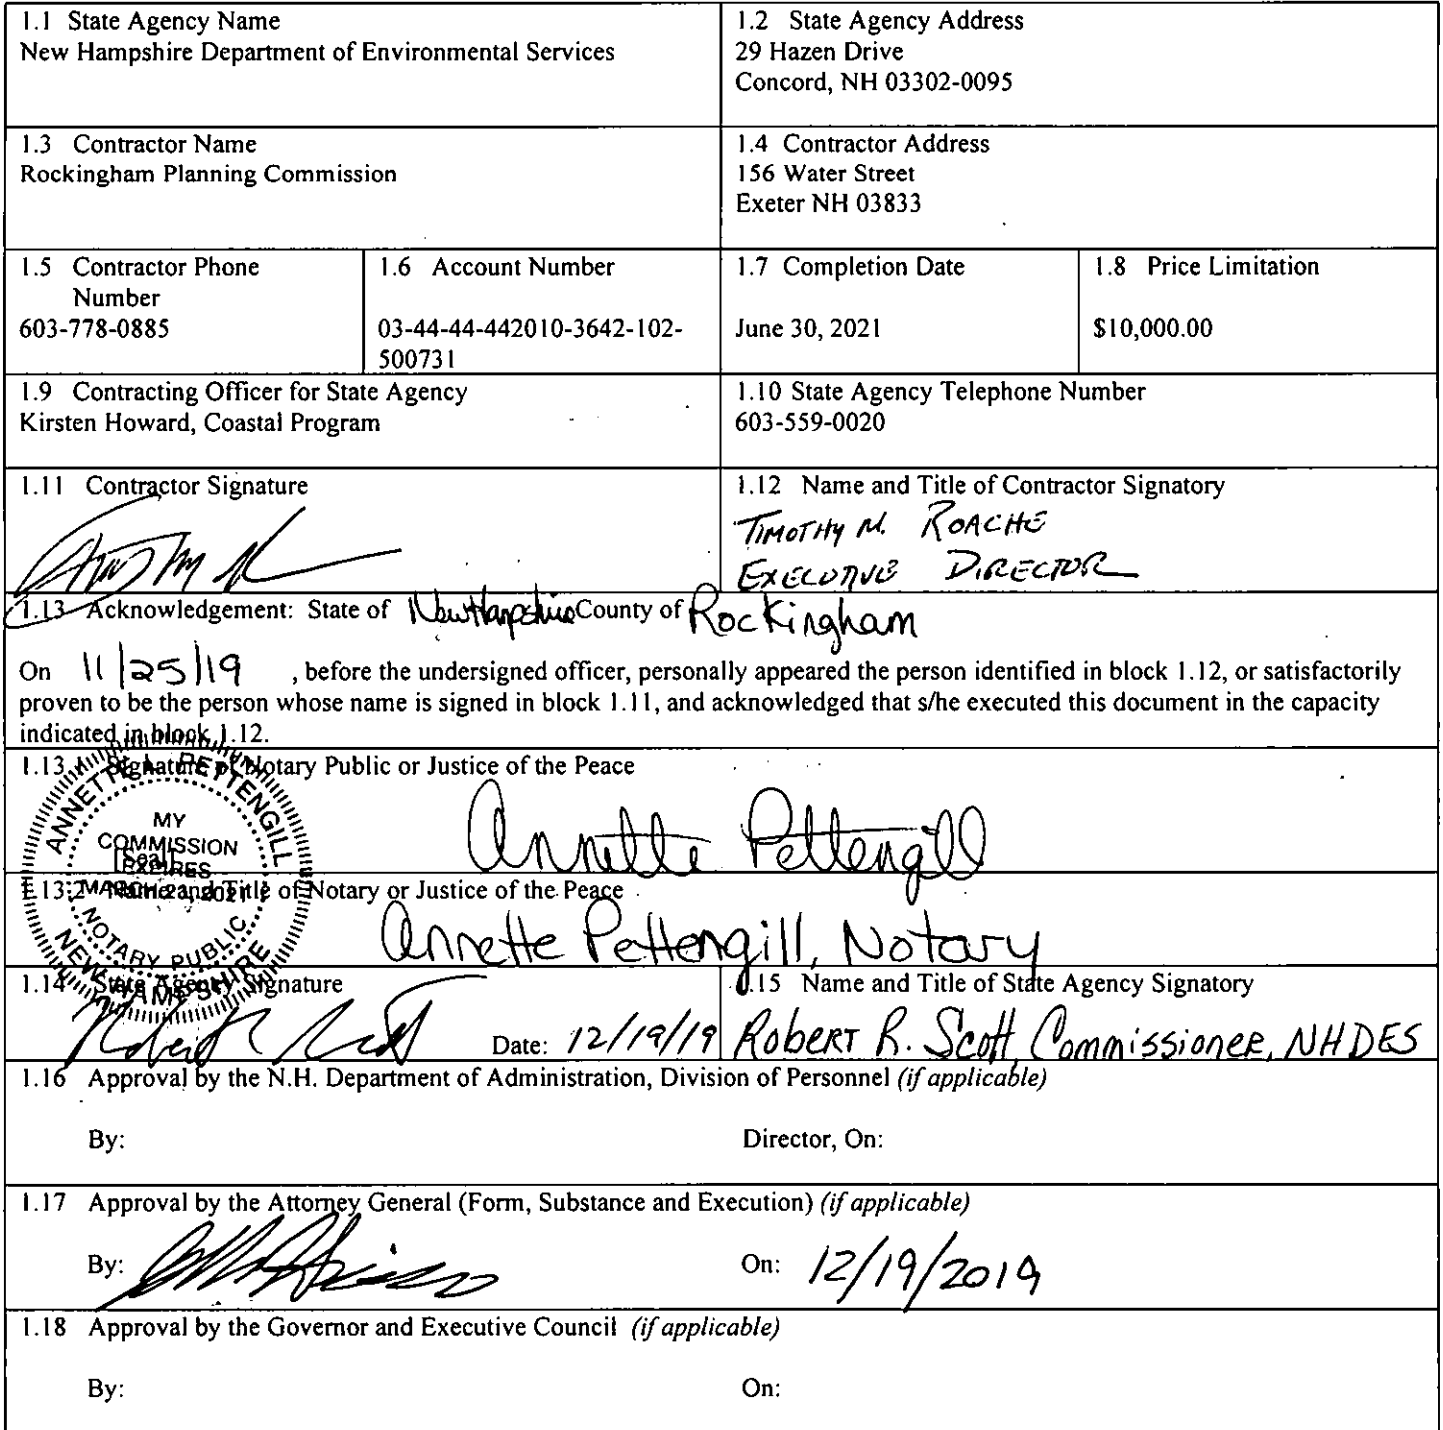 1.1 State Agency Name
New Hampshire Department of Environmental Services
1.2 State Agency Address
29 Hazen Drive
Concord, NH 03302-0095
1.3 Contractor Name
Rockingham Planning Commission
1.4 Contractor Address
156 Water Street
Exeter NH 03833
1.5 Contractor Phone
Number
603-778-0885
1.6 Account Number
03-44-44-442010-3642-102-
500731
1.7 Completion Date
June 30, 2021
1.8 Price Limitation
$10,000.00
1.9 Contracting Officer for State Agency
Kirsten Howard, Coastal Program
1.10 State Agency Telephone Number
603-559-0020
1.11 Contractor Signature
1.12 Name and Title of Contractor Signatory
TIMOTHY M. ROACHE
EXECUTIVE DIRECTOR
1.13 Acknowledgement: State of New Hampshire County of Rockingham
On 11/25/19 , before the undersigned officer, personally appeared the person identified in block 1.12, or satisfactorily
proven to be the person whose name is signed in block 1.11, and acknowledged that s/he executed this document in the capacity
indicated in block 1.12.
1.13.1 Signature of Notary Public or Justice of the Peace
Annette Pettengill
ANNETTE L. PETTENGILL
MY
COMMISSION
[Seal]
EXPIRES
MARCH 23, 2021
NOTARY PUBLIC
NEW HAMPSHIRE
1.13.2 Name and Title of Notary or Justice of the Peace
Annette Pettengill, Notary
1.14 State Agency Signature
Date: 12/19/19
1.15 Name and Title of State Agency Signatory
Robert R. Scott, Commissioner, NHDES
1.16 Approval by the N.H. Department of Administration, Division of Personnel (if applicable)
By:
Director, On:
1.17 Approval by the Attorney General (Form, Substance and Execution) (if applicable)
By:
On: 12/19/2019
1.18 Approval by the Governor and Executive Council (if applicable)
By:
On: